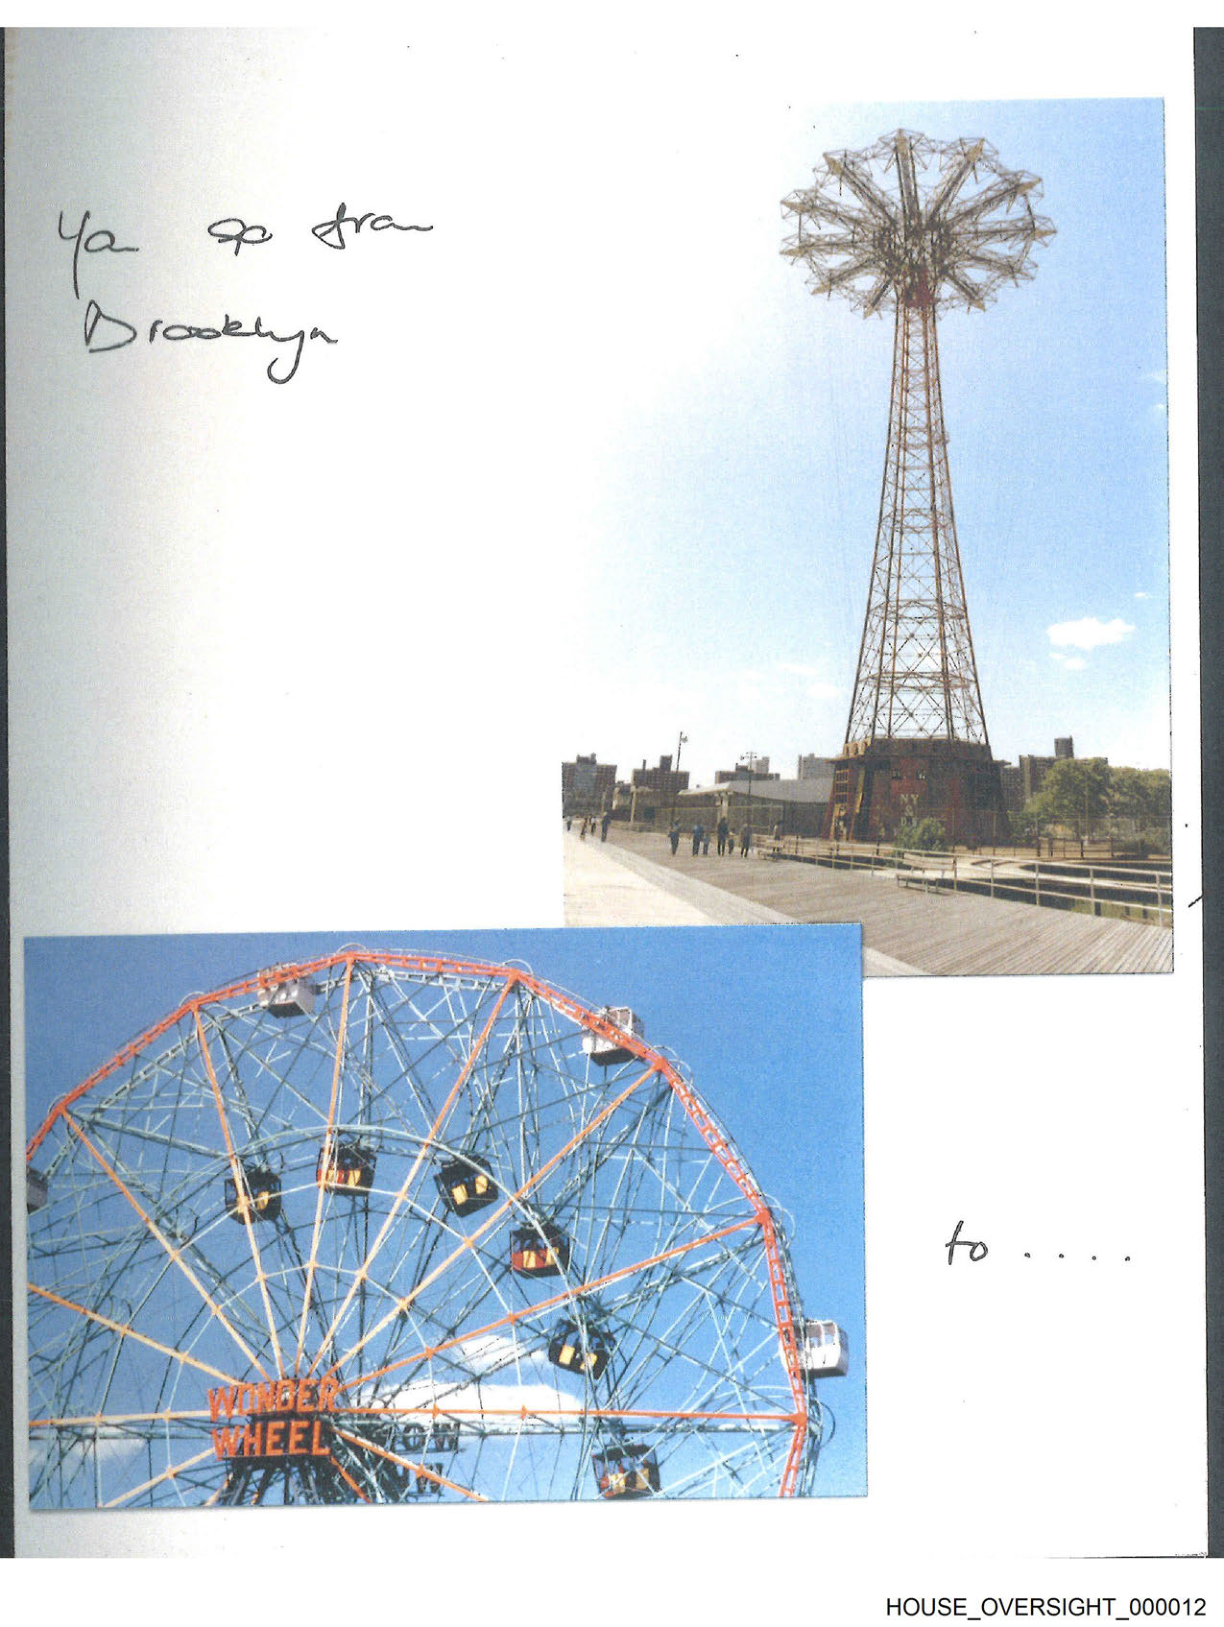 You go from
Brooklyn
NY
to .....
WONDER
WHEEL
HOUSE_OVERSIGHT_000012